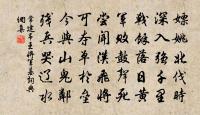 嫖姚北伐時
深入強千里
戰餘落日黃
軍敗鼓聲死
嘗聞漢飛將
可奪單于壘
今與山鬼鄰
殘兵哭遼水
常建吊王將軍墓詞典
網集